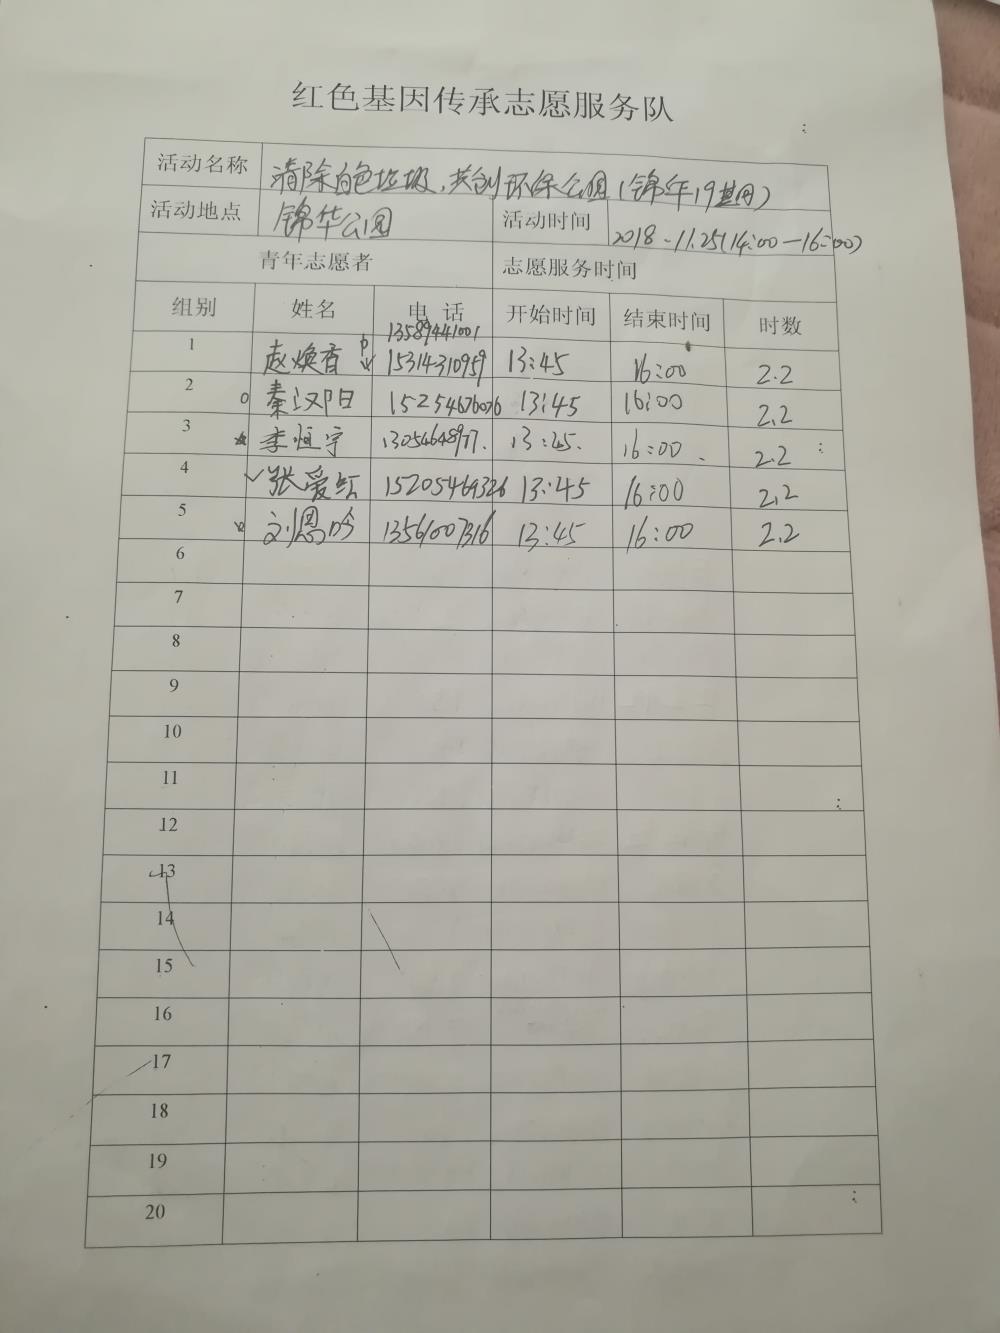 红色基因传承志愿服务队
活动名称 清除白色垃圾,共创环保公园(锦年19期)
活动地点 锦华公园 活动时间 2018.11.25(14:00—16:00)
青年志愿者 志愿服务时间
组别 姓名 电话 开始时间 结束时间 时数
13589441001
1 赵焕香 15314310959 13:45 16:00 2.2
2 秦汉阳 15254676076 13:45 16:00 2.2
3 李恒宇 13:45. 16:00. 2.2
4 张爱 15205469326 13:45 16:00 2.2
5 刘恩吟 13561007316 13:45 16:00 2.2
6
7
8
9
10
11
12
13
14
15
16
17
18
19
20